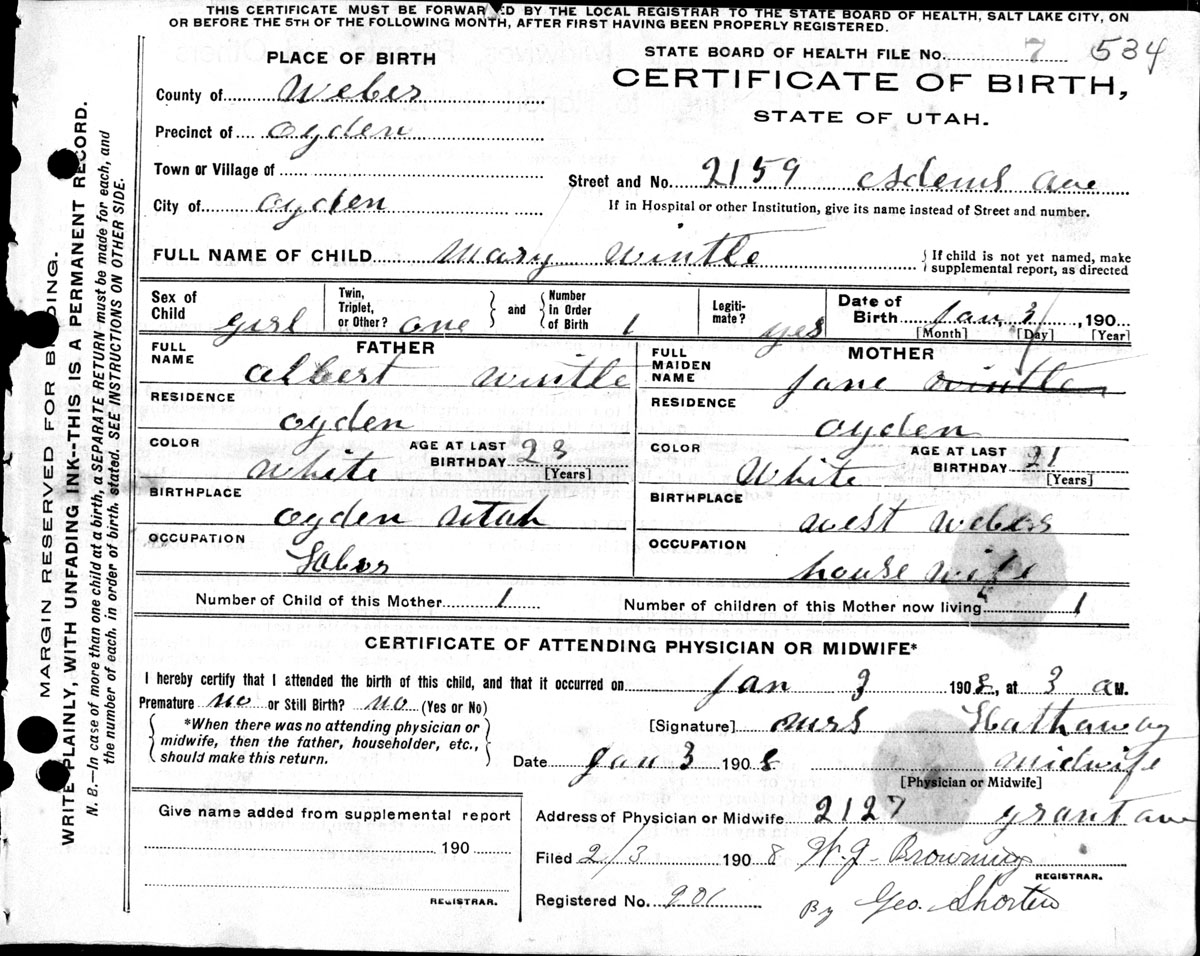 THIS CERTIFICATE MUST BE FORWAR ED BY THE LOCAL REGISTRAR TO THE STATE BOARD OF HEALTH, SALT LAKE CITY, ON
OR BEFORE THE 5TH OF THE FOLLOWING MONTH, AFTER FIRST HAVING BEEN PROPERLY REGISTERED.
MARGIN RESERVED FOR B DING.
WRITE PLAINLY, WITH UNFADING INK--THIS IS A PERMANENT RECORD.
N. B.—In case of more than one child at a birth, a SEPARATE RETURN must be made for each, and
the number of each, in order of birth, stated. SEE INSTRUCTIONS ON OTHER SIDE.
STATE BOARD OF HEALTH FILE No. 7 534
PLACE OF BIRTH
CERTIFICATE OF BIRTH,
STATE OF UTAH.
County of Weber
Precinct of Ogden
Town or Village of
Street and No. 2159 Adems ave
City of Ogden
If in Hospital or other Institution, give its name instead of Street and number.
FULL NAME OF CHILD Mary Wintle
If child is not yet named, make
supplemental report, as directed
Sex of Child girl
Twin, Triplet, or Other? one
and Number in Order of Birth 1
Legitimate? yes
Date of Birth Jan, 3, 190
[Month] [Day] [Year]
FATHER
FULL NAME Albert Wintle
RESIDENCE Ogden
COLOR White
AGE AT LAST BIRTHDAY 23 [Years]
BIRTHPLACE Ogden Utah
OCCUPATION Labor
MOTHER
FULL MAIDEN NAME Jane Wintle
RESIDENCE Ogden
COLOR White
AGE AT LAST BIRTHDAY 21 [Years]
BIRTHPLACE West Weber
OCCUPATION house wife
Number of Child of this Mother 1
Number of children of this Mother now living 1
CERTIFICATE OF ATTENDING PHYSICIAN OR MIDWIFE*
I hereby certify that I attended the birth of this child, and that it occurred on Jan 3 1908, at 3 a M.
Premature no or Still Birth? no (Yes or No)
*When there was no attending physician or
midwife, then the father, householder, etc.,
should make this return.
[Signature] Mrs Hathaway
Date Jan 3 1908 midwife
[Physician or Midwife]
Give name added from supplemental report
190
REGISTRAR.
Address of Physician or Midwife 2127 grant ave
Filed 2/3 1908 W. J. Browning
REGISTRAR.
Registered No. 206 By Geo. Shorten